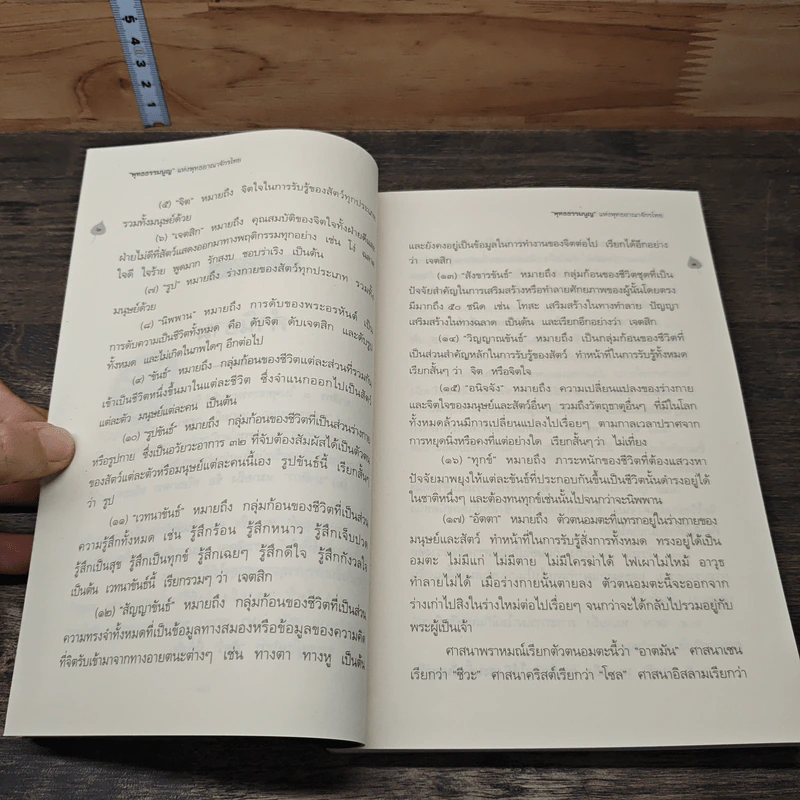 5
4
3
2
1
"พุทธธรรมนูญ" แห่งพุทธอาณาจักรไทย
๒
(๕) "จิต" หมายถึง จิตใจในการรับรู้ของสัตว์ทุกประเภท
รวมทั้งมนุษย์ด้วย
(๖) "เจตสิก" หมายถึง คุณสมบัติของจิตใจทั้งฝ่ายดีและ
ฝ่ายไม่ดีที่สัตว์แสดงออกมาทางพฤติกรรมทุกอย่าง เช่น โง่ ฉลาด
ใจดี ใจร้าย พูดมาก รักสงบ ชอบร่าเริง เป็นต้น
(๗) "รูป" หมายถึง ร่างกายของสัตว์ทุกประเภท รวมทั้ง
มนุษย์ด้วย
(๘) "นิพพาน" หมายถึง การดับของพระอรหันต์ เป็น
การดับความเป็นชีวิตทั้งหมด คือ ดับจิต ดับเจตสิก และดับรูป
ทั้งหมด และไม่เกิดในภพใดๆ อีกต่อไป
(๙) "ขันธ์" หมายถึง กลุ่มก้อนของชีวิตแต่ละส่วนที่รวมกัน
เข้าเป็นชีวิตหนึ่งขึ้นมาในแต่ละชีวิต ซึ่งจำแนกออกไปเป็นสัตว์
แต่ละตัว มนุษย์แต่ละคน เป็นต้น
(๑๐) "รูปขันธ์" หมายถึง กลุ่มก้อนของชีวิตที่เป็นส่วนร่างกาย
หรือรูปกาย ซึ่งเป็นอวัยวะอาการ ๓๒ ที่จับต้องสัมผัสได้เป็นตัวตน
ของสัตว์แต่ละตัวหรือมนุษย์แต่ละคนนี้เอง รูปขันธ์นี้ เรียกสั้นๆ
ว่า รูป
(๑๑) "เวทนาขันธ์" หมายถึง กลุ่มก้อนของชีวิตที่เป็นส่วน
ความรู้สึกทั้งหมด เช่น รู้สึกร้อน รู้สึกหนาว รู้สึกเจ็บปวด
รู้สึกเป็นสุข รู้สึกเป็นทุกข์ รู้สึกเฉยๆ รู้สึกดีใจ รู้สึกกังวลใจ
เป็นต้น เวทนาขันธ์นี้ เรียกรวมๆ ว่า เจตสิก
(๑๒) "สัญญาขันธ์" หมายถึง กลุ่มก้อนของชีวิตที่เป็นส่วน
ความทรงจำทั้งหมดที่เป็นข้อมูลทางสมองหรือข้อมูลของความคิด
ที่จิตรับเข้ามาจากทางอายตนะต่างๆ เช่น ทางตา ทางหู เป็นต้น
"พุทธธรรมนูญ" แห่งพุทธอาณาจักรไทย
๓
และยังคงอยู่เป็นข้อมูลในการทำงานของจิตต่อไป เรียกได้อีกอย่าง
ว่า เจตสิก
(๑๓) "สังขารขันธ์" หมายถึง กลุ่มก้อนของชีวิตชุดที่เป็น
ปัจจัยสำคัญในการเสริมสร้างหรือทำลายศักยภาพของผู้นั้นโดยตรง
มีมากถึง ๕๐ ชนิด เช่น โทสะ เสริมสร้างในทางทำลาย ปัญญา
เสริมสร้างในทางฉลาด เป็นต้น และเรียกอีกอย่างว่า เจตสิก
(๑๔) "วิญญาณขันธ์" หมายถึง เป็นกลุ่มก้อนของชีวิตที่
เป็นส่วนสำคัญหลักในการรับรู้ของสัตว์ ทำหน้าที่ในการรับรู้ทั้งหมด
เรียกสั้นๆ ว่า จิต หรือจิตใจ
(๑๕) "อนิจจัง" หมายถึง ความเปลี่ยนแปลงของร่างกาย
และจิตใจของมนุษย์และสัตว์อื่นๆ รวมถึงวัตถุธาตุอื่นๆ ที่มีในโลก
ทั้งหมดล้วนมีการเปลี่ยนแปลงไปเรื่อยๆ ตามกาลเวลาปราศจาก
การหยุดนิ่งหรือคงที่แต่อย่างใด เรียกสั้นๆ ว่า ไม่เที่ยง
(๑๖) "ทุกข์" หมายถึง ภาระหนักของชีวิตที่ต้องแสวงหา
ปัจจัยมาพยุงให้แต่ละขันธ์ที่ประกอบกันขึ้นเป็นชีวิตนั้นดำรงอยู่ได้
ในชาติหนึ่งๆ และต้องทนทุกข์เช่นนั้นไปจนกว่าจะนิพพาน
(๑๗) "อัตตา" หมายถึง ตัวตนอมตะที่แทรกอยู่ในร่างกายของ
มนุษย์และสัตว์ ทำหน้าที่ในการรับรู้สิ่งการทั้งหมด ทรงอยู่ได้เป็น
อมตะ ไม่มีแก่ ไม่มีตาย ไม่มีใครฆ่าได้ ไฟเผาไม่ไหม้ อาวุธ
ทำลายไม่ได้ เมื่อร่างกายนั้นตายลง ตัวตนอมตะนี้จะออกจาก
ร่างเก่าไปสิงในร่างใหม่ต่อไปเรื่อยๆ จนกว่าจะได้กลับไปรวมอยู่กับ
พระผู้เป็นเจ้า
ศาสนาพราหมณ์เรียกตัวตนอมตะนี้ว่า "อาตมัน" ศาสนาเชน
เรียกว่า "ชีวะ" ศาสนาคริสต์เรียกว่า "โซล" ศาสนาอิสลามเรียกว่า